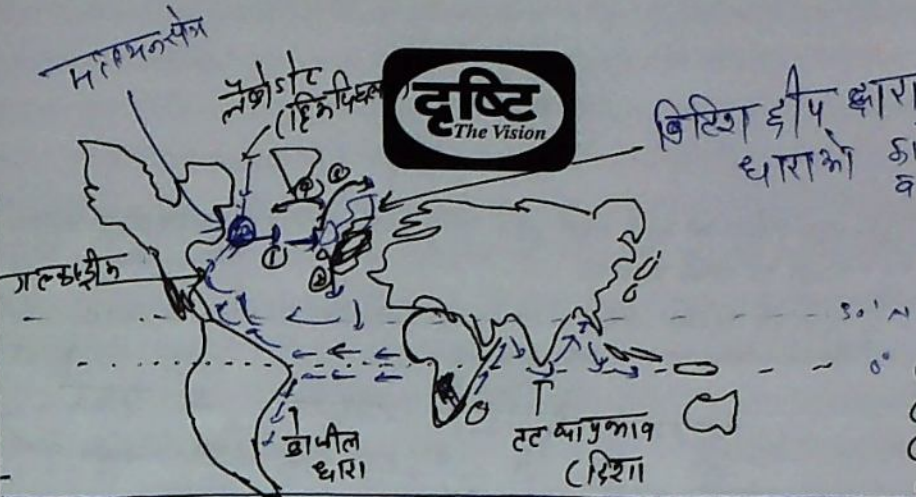 मत्स्यन क्षेत्र
लेब्रोडोर
दृष्टि
The Vision
ब्रिटिश द्वीप द्वारा
धाराओ का
व
①
②
गल्फस्ट्रीम
30° N
0°
ब्राजील
धारा
तट का प्रभाव
(दिशा